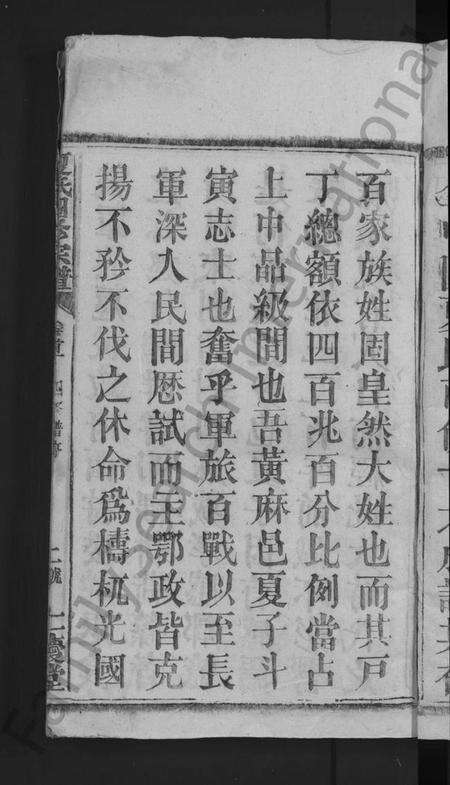 百家族姓固皇然大姓也而其戸
丁總額依四百兆百分比例當占
上中品級間也吾黃麻邑夏子斗
寅志士也奮乎軍旅百戰以至長
軍深入民間歷試而主鄂政皆克
揚不矜不伐之休命爲檮杌光國
二號
FamilySearch International